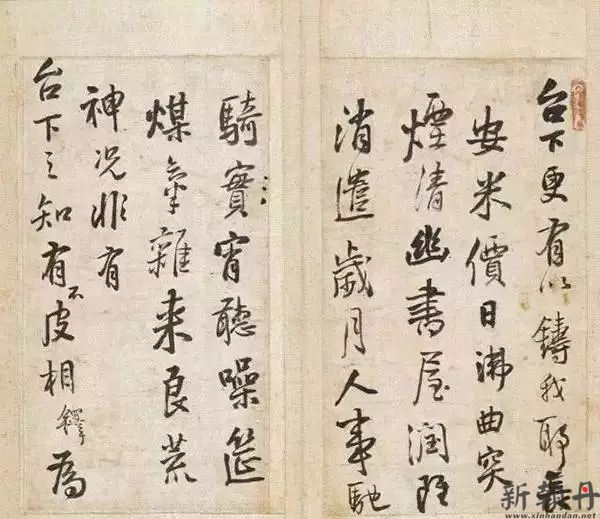 台下更有以鑄我耶長
安米價日沸曲突
煙清幽書屋潤
消遣歲月人事馳
騎實宵聽噪筵
煤氣雜来良荒
神況非有
台下之知有不皮相鐸為
新韓丹
www.xinhandan.net